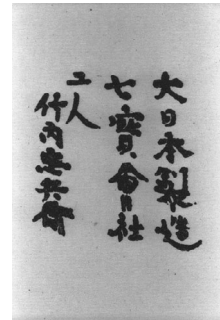 大日本製造
七寳會社
工人
竹内忠兵衛